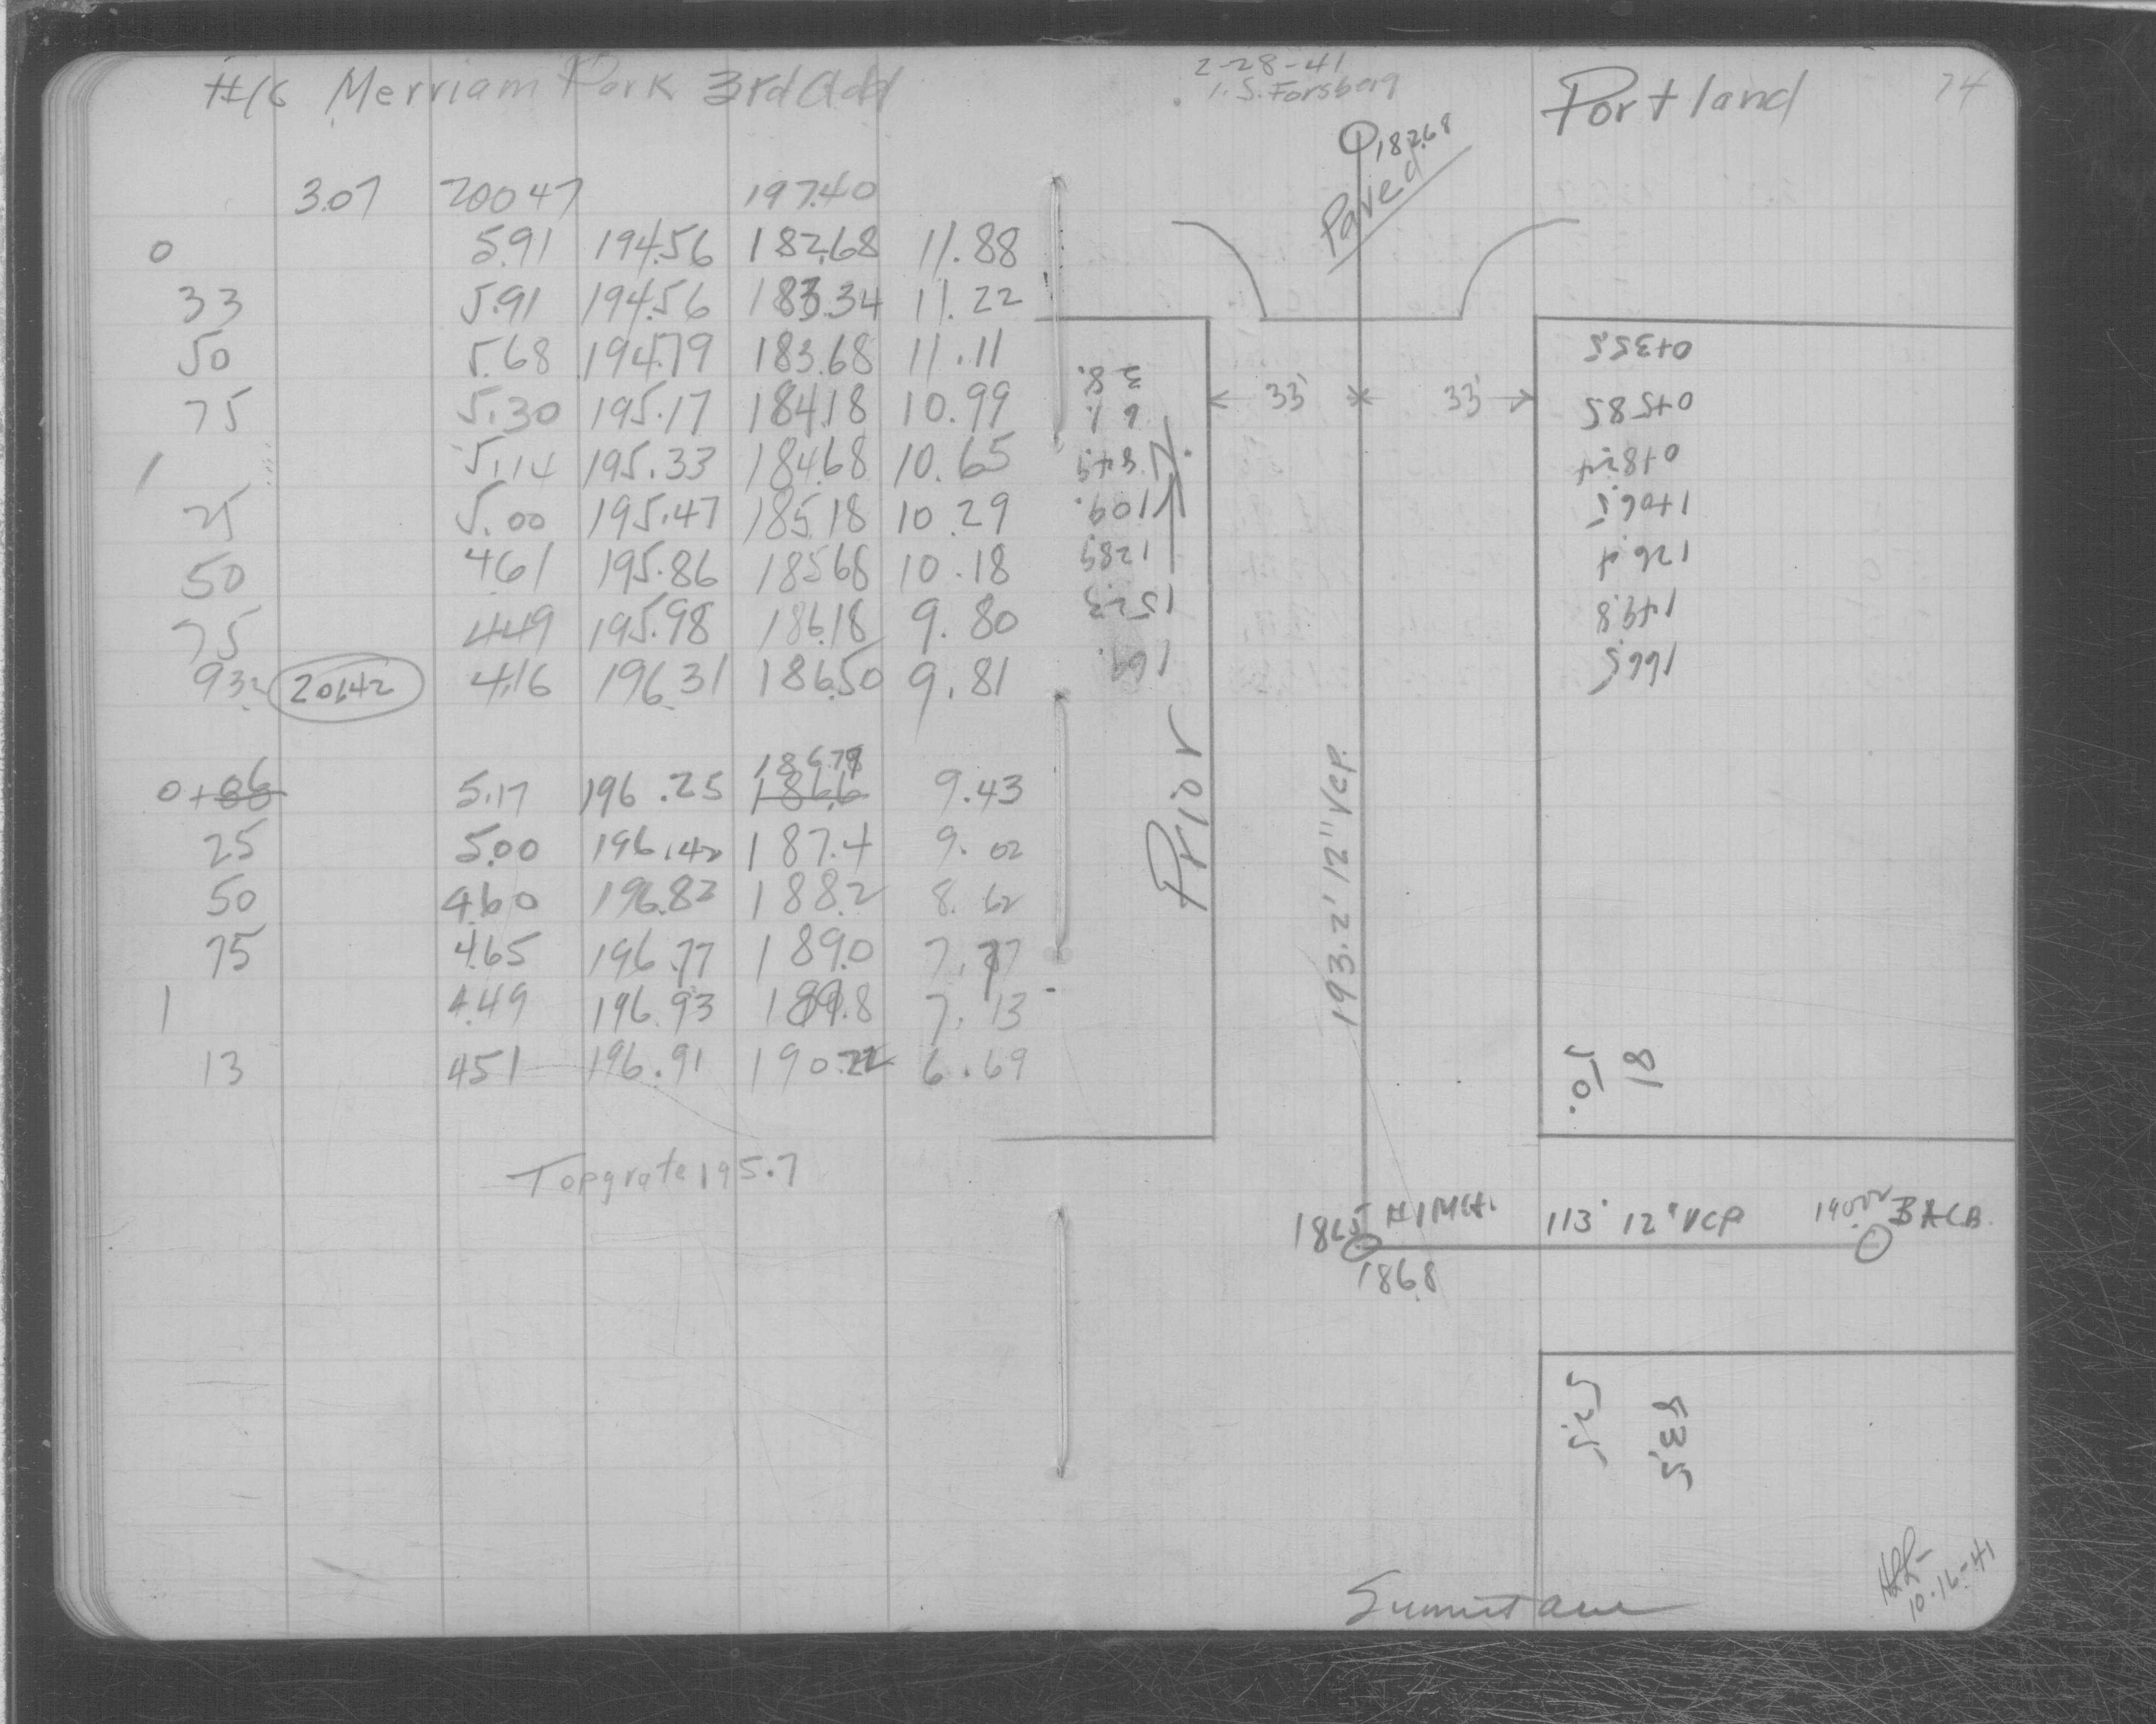 #16 Merriam Park 3rd Add
3.07 200 47 197.40
0 5.91 194.56 182.68 11.88
33 5.91 194.56 183.34 11.22
50 5.68 194.79 183.68 11.11
75 5.30 195.17 184.18 10.99
1 5.14 195.33 184.68 10.65
25 5.00 195.47 185.18 10.29
50 4.61 195.86 185.68 10.18
75 4.49 195.98 186.18 9.80
93.2 201.42 4.16 196.31 186.50 9.81
186.79
0+06 5.17 196.25 186.6 9.43
25 5.00 196.42 187.4 9.02
50 4.60 196.82 188.2 8.62
75 4.65 196.77 189.0 7.77
1 4.49 196.93 189.8 7.13
13 4.51 196.91 190.22 6.69
Top grate 195.7
2-28-41
I.S. Forsberg
Portland
74
182.68
Paved
33' 33'
0+35.5
0+58.5
0+82.4
1+06.5
126.4
1+49.8
166.5
38.
61.
84.9
109.
128.9
152.3
169.
Prior
193.2' 12" VCP
50.
18
186.5 #1 MH. 113' 12" VCP 190.22 B#CB.
186.8
52.5
53.5
Summit ave
10-16-41